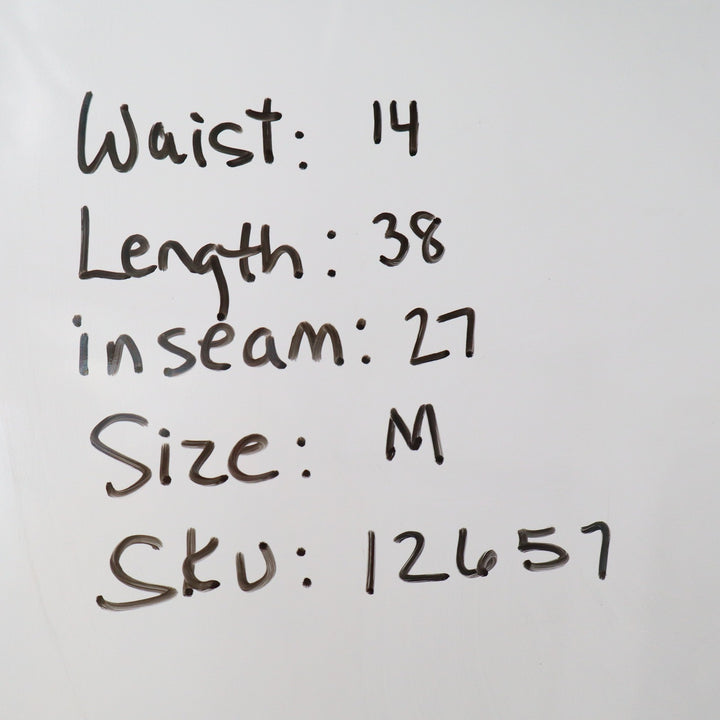 Waist: 14
Length: 38
inseam: 27
Size: M
Sku: 12657